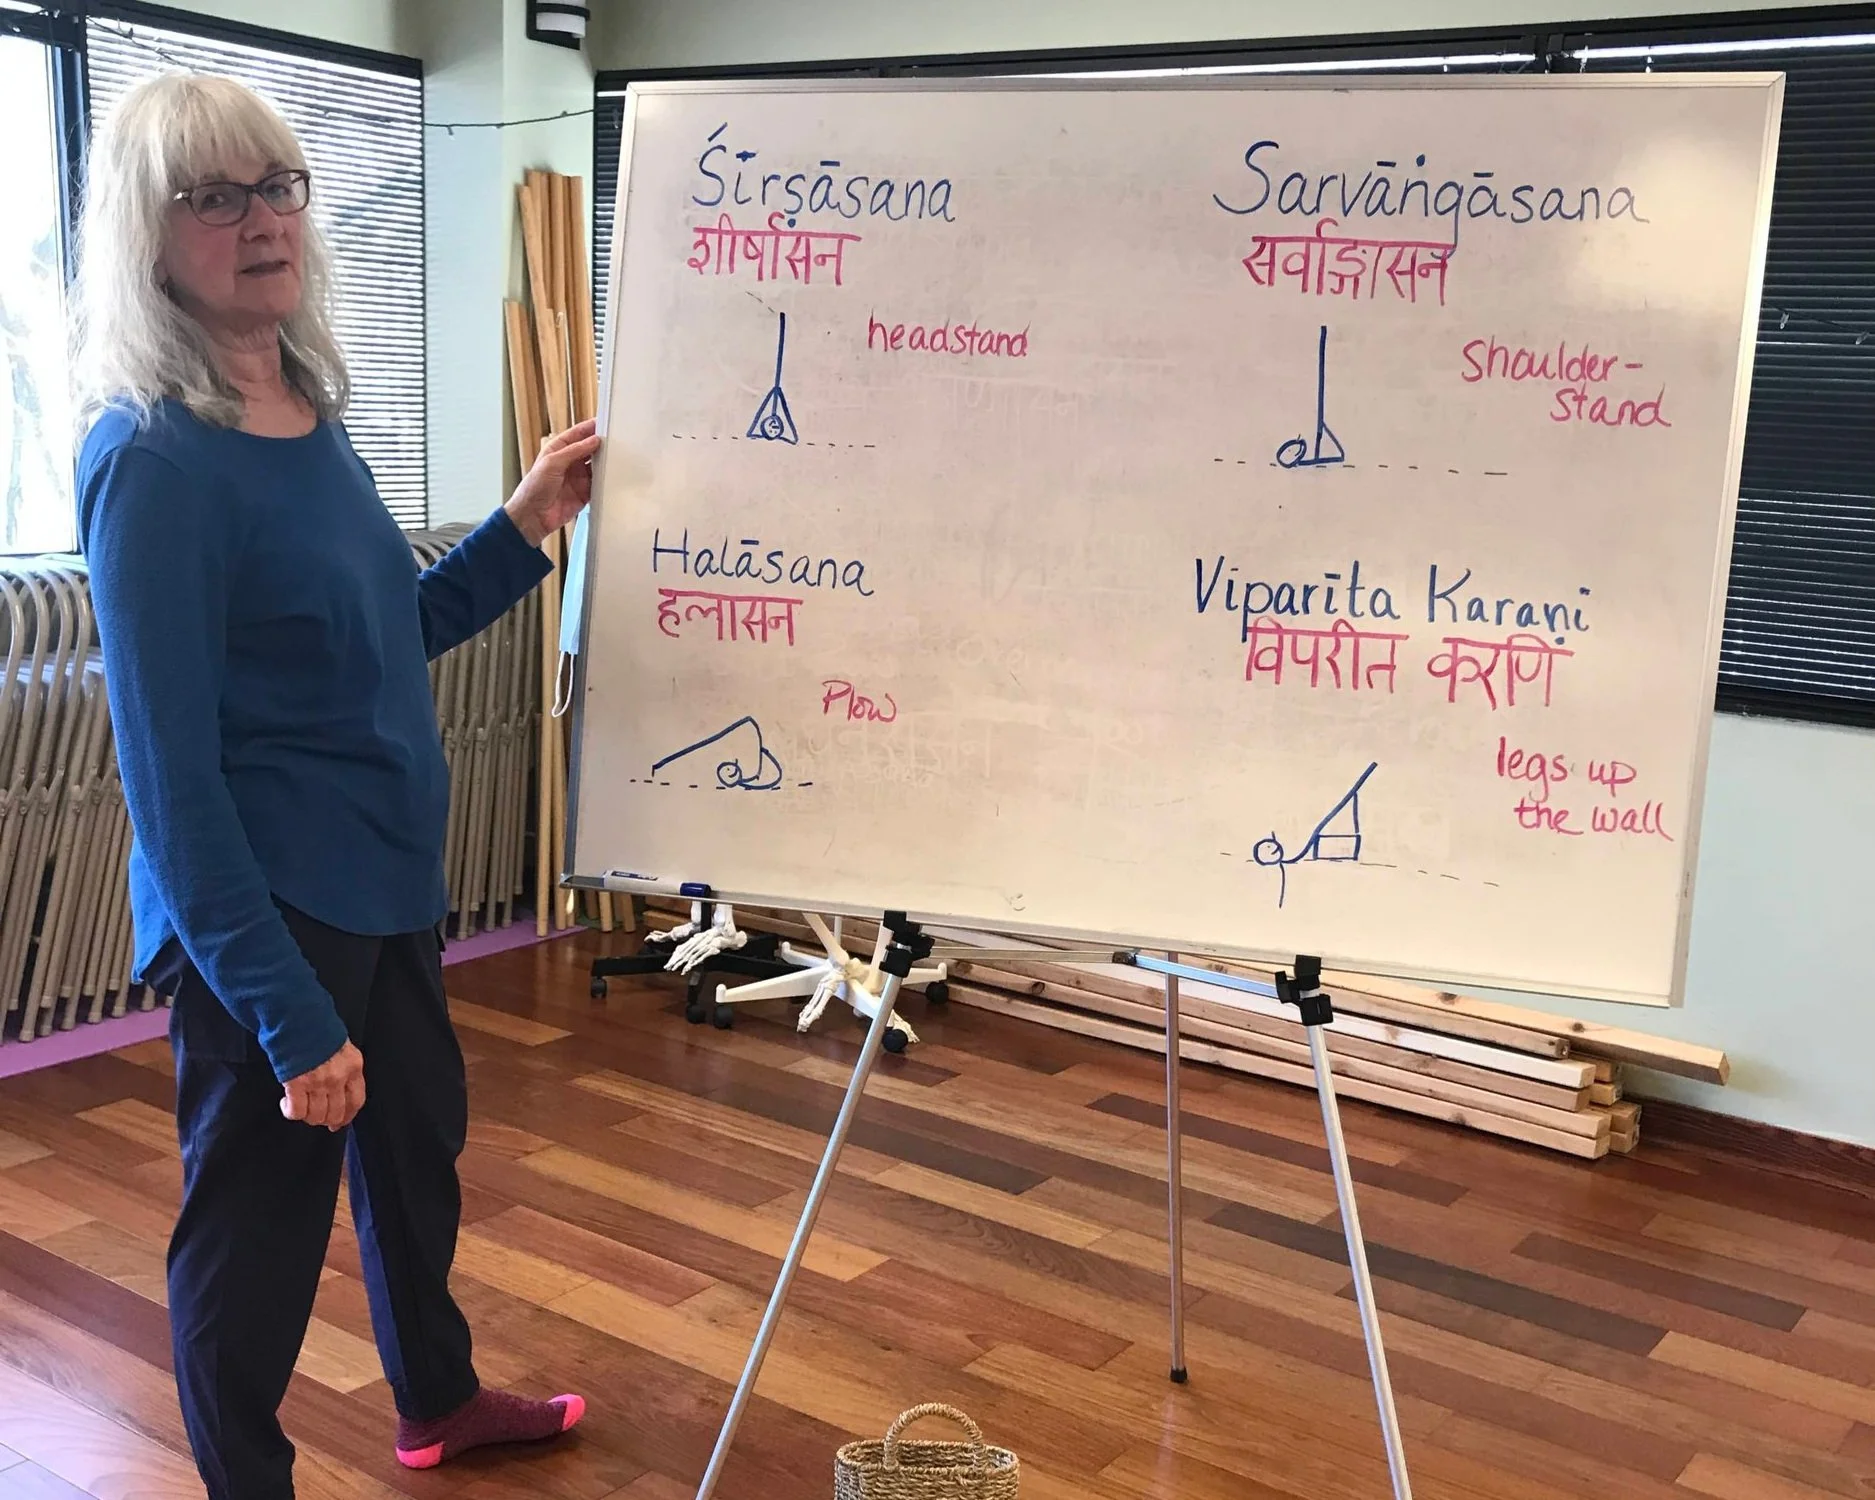 Śīrṣāsana
शीर्षासन
headstand
Sarvāṅgāsana
सर्वाङ्गासन
Shoulder-
stand
Halāsana
हलासन
Plow
Viparīta Karaṇi
विपरीत करणि
legs up
the wall